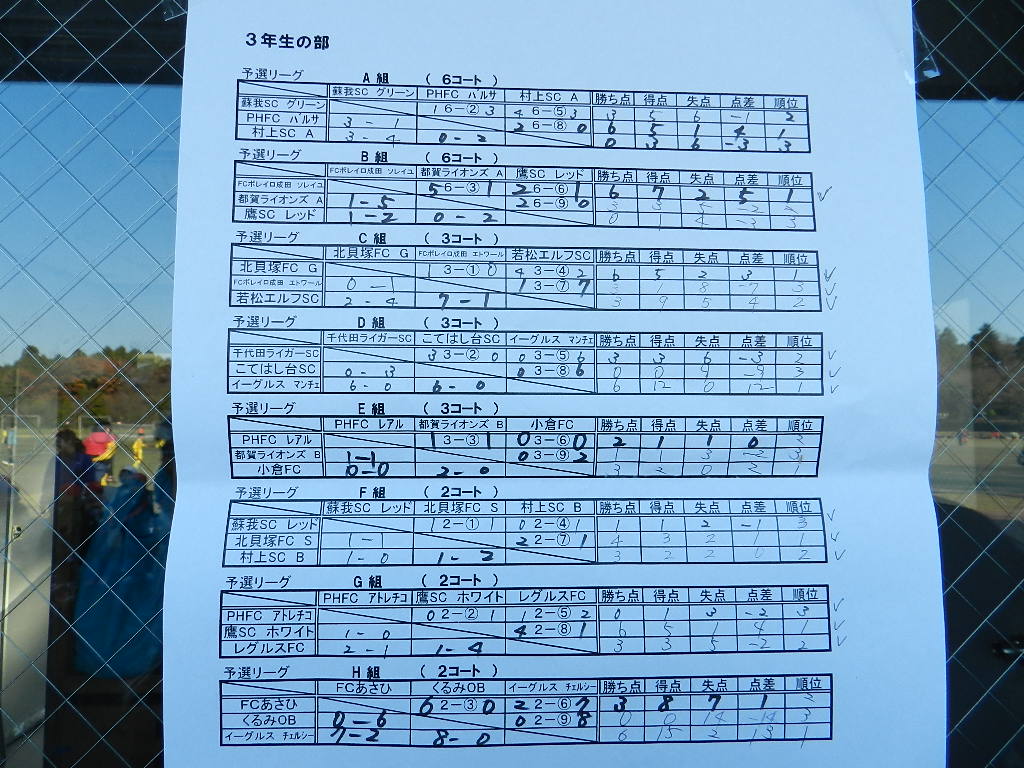 3年生の部
予選リーグ A組 (6コート)
蘇我SC グリーン PHFC バルサ 村上SC A 勝ち点 得点 失点 点差 順位
蘇我SC グリーン 1 6-② 3 4 6-⑤ 3 3 5 6 -1 2
PHFC バルサ 3 - 1 2 6-⑧ 0 6 5 1 4 1
村上SC A 3 - 4 0 - 2 0 3 6 -3 3
予選リーグ B組 (6コート)
FCボレイロ成田 ソレイユ 都賀ライオンズ A 鷹SC レッド 勝ち点 得点 失点 点差 順位
FCボレイロ成田 ソレイユ 5 6-③ 1 2 6-⑥ 1 6 7 2 5 1
都賀ライオンズ A 1 - 5 2 6-⑨ 0 3 3 5 -2 2
鷹SC レッド 1 - 2 0 - 2 0 1 4 -3 3
予選リーグ C組 (3コート)
北貝塚FC G FCボレイロ成田 エトワール 若松エルフSC 勝ち点 得点 失点 点差 順位
北貝塚FC G 1 3-① 0 4 3-④ 2 6 5 2 3 1
FCボレイロ成田 エトワール 0 - 1 1 3-⑦ 7 3 1 8 -7 3
若松エルフSC 2 - 4 7 - 1 3 9 5 4 2
予選リーグ D組 (3コート)
千代田ライガーSC こてはし台SC イーグルス マンチェ 勝ち点 得点 失点 点差 順位
千代田ライガーSC 3 3-② 0 0 3-⑤ 6 3 3 6 -3 2
こてはし台SC 0 - 3 0 3-⑧ 6 0 0 9 -9 3
イーグルス マンチェ 6 - 0 6 - 0 6 12 0 12 1
予選リーグ E組 (3コート)
PHFC レアル 都賀ライオンズ B 小倉FC 勝ち点 得点 失点 点差 順位
PHFC レアル 1 3-③ 1 0 3-⑥ 0 2 1 1 0 2
都賀ライオンズ B 1 - 1 0 3-⑨ 2 1 1 3 -2 3
小倉FC 0 - 0 2 - 0 3 2 0 2 1
予選リーグ F組 (2コート)
蘇我SC レッド 北貝塚FC S 村上SC B 勝ち点 得点 失点 点差 順位
蘇我SC レッド 1 2-① 1 0 2-④ 1 1 1 2 -1 3
北貝塚FC S 1 - 1 2 2-⑦ 1 4 3 2 1 1
村上SC B 1 - 0 1 - 2 3 2 2 0 2
予選リーグ G組 (2コート)
PHFC アトレチコ 鷹SC ホワイト レグルスFC 勝ち点 得点 失点 点差 順位
PHFC アトレチコ 0 2-② 1 1 2-⑤ 2 0 1 3 -2 3
鷹SC ホワイト 1 - 0 4 2-⑧ 1 6 5 1 4 1
レグルスFC 2 - 1 1 - 4 3 3 5 -2 2
予選リーグ H組 (2コート)
FCあさひ くるみOB イーグルス チェルシー 勝ち点 得点 失点 点差 順位
FCあさひ 6 2-③ 0 2 2-⑥ 7 3 8 7 1 2
くるみOB 0 - 6 0 2-⑨ 8 0 0 14 -14 3
イーグルス チェルシー 7 - 2 8 - 0 6 15 2 13 1